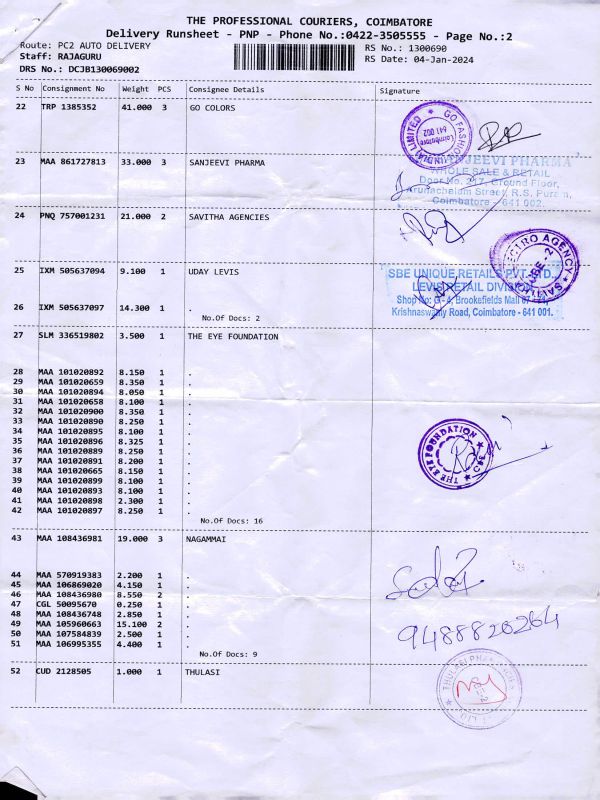 THE PROFESSIONAL COURIERS, COIMBATORE
Delivery Runsheet - PNP - Phone No.:0422-3505555 - Page No.:2
Route: PC2 AUTO DELIVERY
RS No.: 1300690
Staff: RAJAGURU
RS Date: 04-Jan-2024
DRS No.: DCJB130069002
S No Consignment No Weight PCS Consignee Details Signature
22 TRP 1385352 41.000 3 GO COLORS
GO FASHION INDIA LIMITED
Coimbatore
641 002
23 MAA 861727813 33.000 3 SANJEEVI PHARMA
SANJEEVI PHARMA
WHOLE SALE & RETAIL
Door No. 217, Ground Floor,
Arunachalam Street, R.S. Puram,
Coimbatore - 641 002.
24 PNQ 757001231 21.000 2 SAVITHA AGENCIES
25 IXM 505637094 9.100 1 UDAY LEVIS
SBE UNIQUE RETAILS PVT. LTD.,
LEVIS RETAIL DIVISION
Shop No: G-4, Brookefields Mall 67-71,
Krishnaswamy Road, Coimbatore - 641 001.
26 IXM 505637097 14.300 1 .
No.Of Docs: 2
27 SLM 336519802 3.500 1 THE EYE FOUNDATION
28 MAA 101020892 8.150 1 .
29 MAA 101020659 8.350 1 .
30 MAA 101020894 8.050 1 .
31 MAA 101020658 8.100 1 .
32 MAA 101020900 8.350 1 .
33 MAA 101020890 8.250 1 .
34 MAA 101020895 8.100 1 .
35 MAA 101020896 8.325 1 .
36 MAA 101020889 8.250 1 .
37 MAA 101020891 8.200 1 .
38 MAA 101020665 8.150 1 .
39 MAA 101020899 8.100 1 .
40 MAA 101020893 8.100 1 .
41 MAA 101020898 2.300 1 .
42 MAA 101020897 8.250 1 .
THE EYE FOUNDATION
No.Of Docs: 16
43 MAA 108436981 19.000 3 NAGAMMAI
44 MAA 570919383 2.200 1 .
45 MAA 106869020 4.150 1 .
46 MAA 108436980 8.550 2 .
47 CGL 50095670 0.250 1 .
48 MAA 108436748 2.850 1 .
49 MAA 105960663 15.100 2 .
50 MAA 107584839 2.500 1 .
51 MAA 106995355 4.400 1 .
9488820264
No.Of Docs: 9
52 CUD 2128505 1.000 1 THULASI